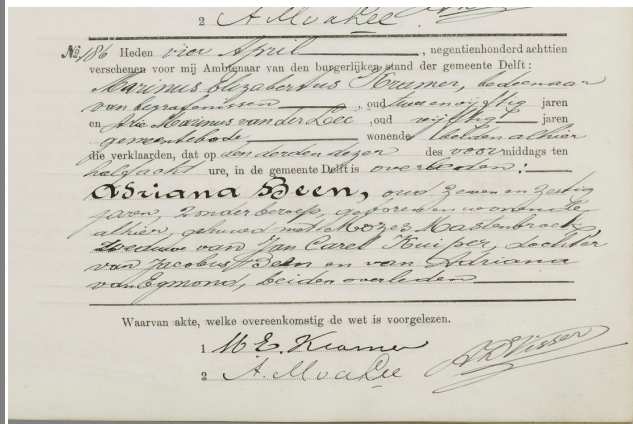 2 A. M v d Lee
No. 186 Heden vier April, negentienhonderd achttien
verschenen voor mij Ambtenaar van den burgerlijken stand der gemeente Delft:
Marinus Elizabertus Kramer, bedienaar
van begrafenissen, oud twee en vijftig jaren
en Arie Marinus van der Lee, oud vijftig jaren
gemeentebode wonende beiden alhier
die verklaarden, dat op den derden dezer des voormiddags ten
half acht ure, in de gemeente Delft is overleden:
Adriana Been, oud zeven en zestig
jaren, zonder beroep, geboren en wonende
alhier, gehuwd met Mozes Mastenbroek,
weduwe van Jan Carel Kuiper, dochter
van Jacobus Been en van Adriana
van Egmond, beiden overleden
Waarvan akte, welke overeenkomstig de wet is voorgelezen.
1 M E. Kramer
2 A. M v d Lee